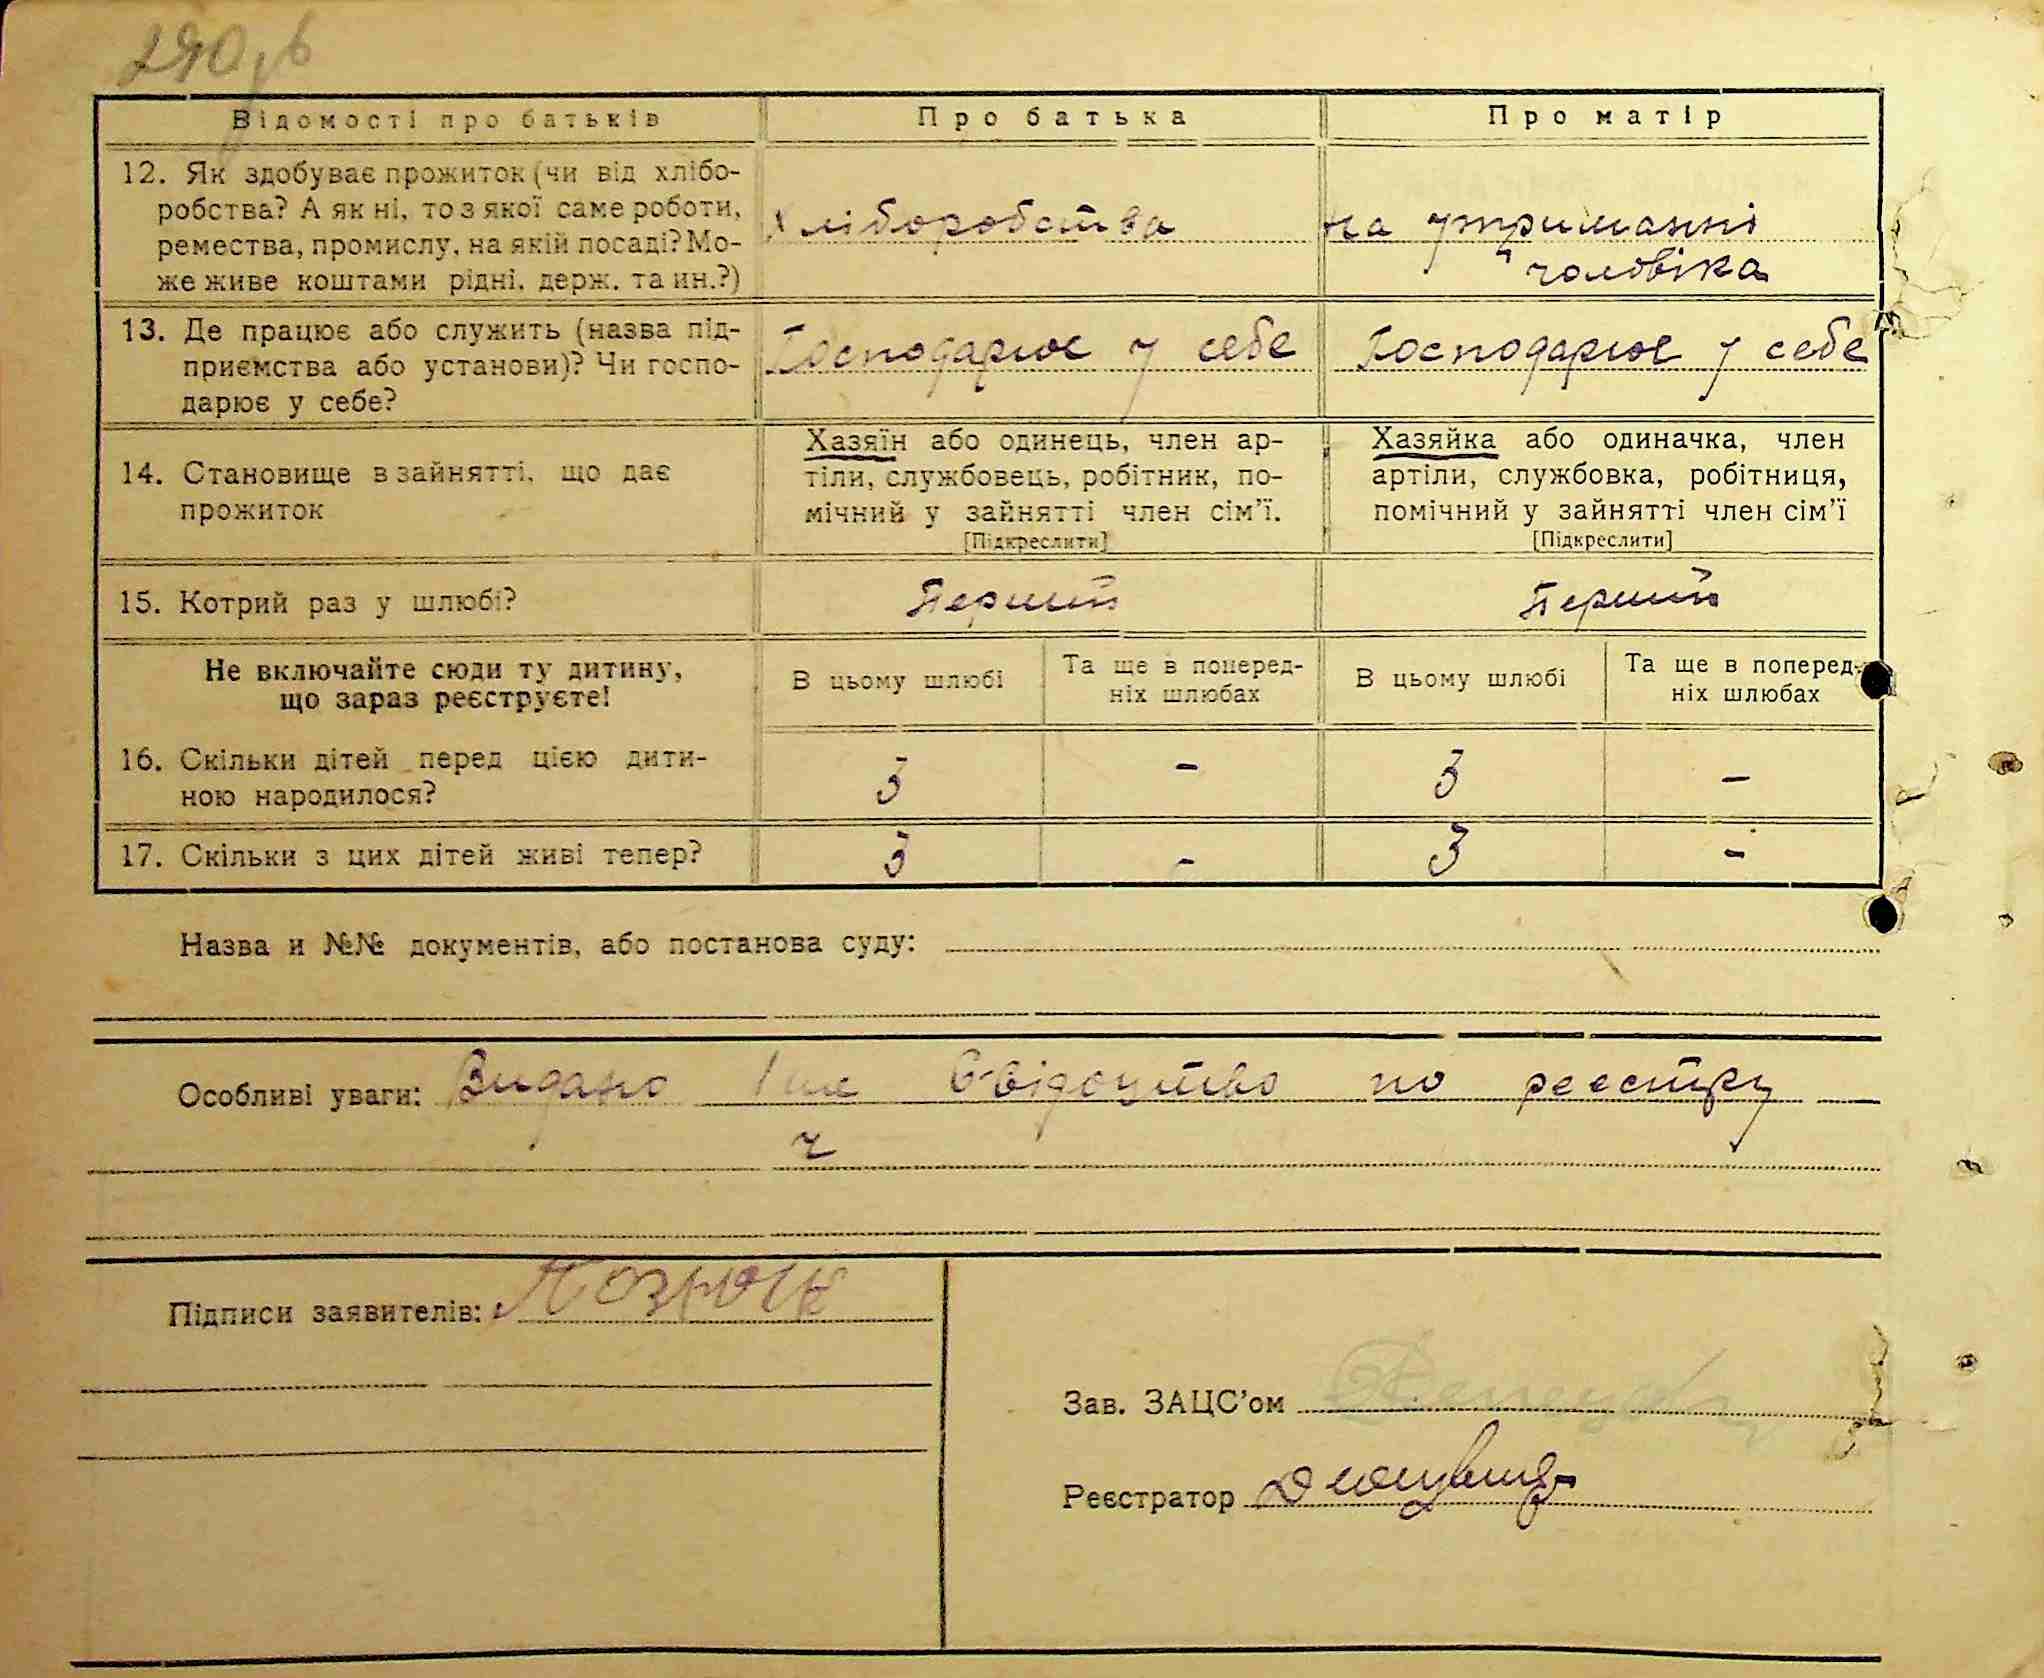 Відомості про батьків
Про батька
Про матір
12. Як здобуває прожиток (чи від хлібо-
робства? А як ні, то з якої саме роботи,
ремества, промислу, на якій посаді? Мо-
же живе коштами рідні, держ. та ин.?)
Хліборобства
на утриманні
чоловіка
13. Де працює або служить (назва під-
приємства або установи)? Чи госпо-
дарює у себе?
Господарює у себе
Господарює у себе
14. Становище в зайнятті, що дає
прожиток
Хазяїн або одинець, член ар-
тіли, службовець, робітник, по-
мічний у зайнятті член сім'ї.
[Підкреслити]
Хазяйка або одиначка, член
артіли, службовка, робітниця,
помічний у зайнятті член сім'ї
[Підкреслити]
15. Котрий раз у шлюбі?
Перший
Перший
Не включайте сюди ту дитину,
що зараз реєструєте!
В цьому шлюбі
Та ще в поперед-
ніх шлюбах
В цьому шлюбі
Та ще в поперед-
ніх шлюбах
16. Скільки дітей перед цією дити-
ною народилося?
3 - 3 -
17. Скільки з цих дітей живі тепер?
3 - 3 -
Назва и №№ документів, або постанова суду:
Особливі уваги: Видано по реєстру
Підписи заявителів:
Зав. ЗАЦС'ом
Реєстратор